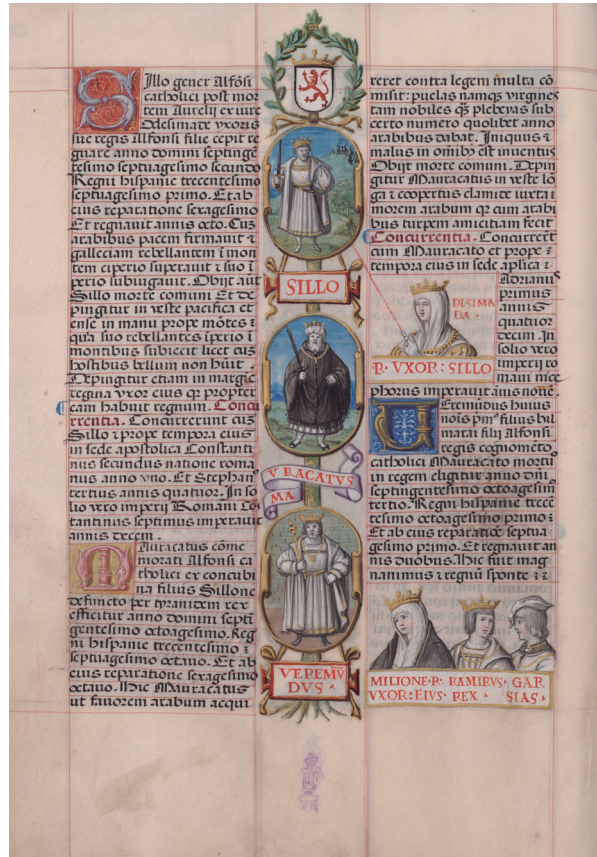 Sillo gener Alfōsi
catholici post mor
tem Aurelii ex iure
Odesimade vxoris
sue regis Alfonsi filie cepit re
gnare anno domini septinge
tesimo septuagesimo secundo
Regni hispanie trecentesimo
septuagesimo primo. Et ab
eius reparatione sexagesimo
Et regnauit annis octo. Cūz
arabibus pacem firmauit ⁊
galleciam rebellantem ī mon
tem ciperio superauit ⁊ suo ī
perio subiugauit. Obijt aūt
Sillo morte comuni Et de
pingitur in veste pacifica et
ense in manu prope mōtes ⁊
quia suo rebellantes īperio ī
montibus subiecit licet cuz
hostibus bellum non huit
Depingitur etiam in margīe
regina vxor eius qr̄ propter
eam habuit regnum. Concu
rrentia. Concurrerunt cuz
Sillo ⁊ prope tempora eius
in sede apostolica Constanti
nus secundus natione roma
nus anno vno. Et Stephanꝰ
tertius annis quatuor. In so
lio vero imperii Romani Cōs
tantinus septimus imperauit
annis decem.
Mauracatus cōme
morati Alfonsi ca
tholici ex concubi
na filius Sillone
defuncto per tyranidem rex
efficitur anno domini septi
gentesimo octoagesimo. Reg
ni hispanie trecentesimo ⁊
septuagesimo octauo. Et ab
eius reparatione sexagesimo
octauo. Hic Mauracatus
ut fauorem arabum acqui
SILLO
V RACATVS
MA
VEREMV̄
DVS
reret contra legem multa cō
misit: puelas namqꝫ virgines
tam nobiles qꝫ plebeyas sub
certo numero quolibet anno
arabibus dabat. Iniquus ⁊
malus in omībꝰ est inuentus
Obijt morte comuni. Depin
gitur Mauracatus in veste lō
ga ⁊ coopertus clamide iuxta
morem arabum qr̄ cum arabi
bus turpem amicitiam fecit
Concurrentia. Concurrerūt
cum Mauracato et prope ⁊
tempora eius in sede aplica ⁊
Adrianus
primus
annis
quatuor
decim. In
solio vero
imperii ro
mani nice
DISIMA
DA
R· VXOR: SILLO
phorus imperauit annis noue.
Veremūdus huius
nois pmꝰ filius bil
marai filii Alfonsi
regis cognomēto
catholici Mauracato mortuo
in regem eligitur anno dn̄i
septingentesimo octoagesimo
tertio. Regni hispanie trece
tesimo octoagesimo primo ⁊
Et ab eius reparatiōe septua
gesimo primo. Et regnauit an
nis duobus. Hic fuit mag
nanimus ⁊ regnū sponte ⁊ ⁊
MILIONE·R· RAMIRVS· GAR
VXOR: EIVS· REX · SIAS·